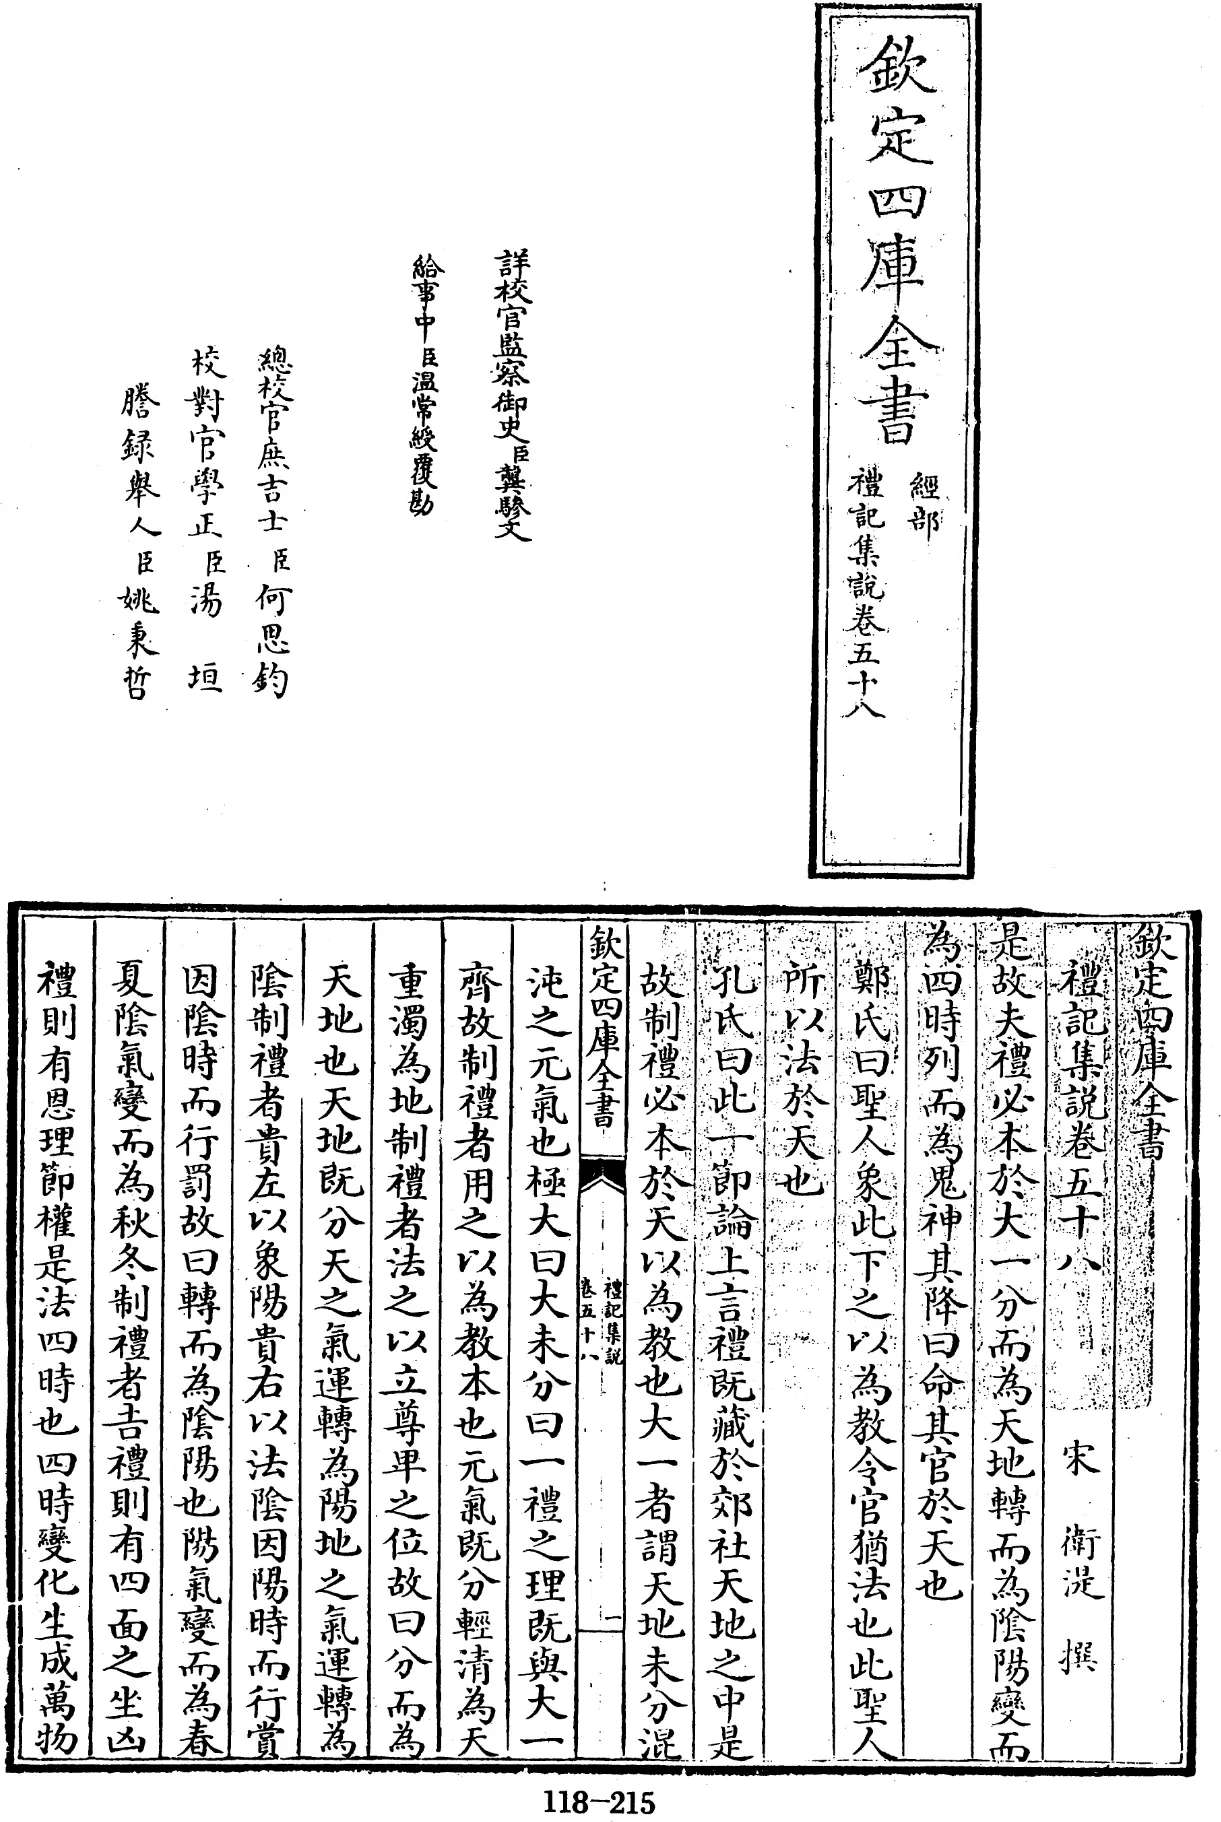 欽定四庫全書
經部
禮記集說卷五十八
詳校官監察御史臣龔驂文
給事中臣溫常綬覆勘
總校官庶吉士臣何思鈞
校對官學正臣湯垣
謄錄舉人臣姚秉哲
欽定四庫全書
禮記集說卷五十八
宋 衛湜 撰
是故夫禮必本於大一分而為天地轉而為陰陽變而
為四時列而為鬼神其降曰命其官於天也
鄭氏曰聖人象此下之以為教令官猶法也此聖人
所以法於天也
孔氏曰此一節論上言禮既藏於郊社天地之中是
故制禮必本於天以為教也大一者謂天地未分混
欽定四庫全書
禮記集說
卷五十八
一
沌之元氣也極大曰大未分曰一禮之理既與大一
齊故制禮者用之以為教本也元氣既分輕清為天
重濁為地制禮者法之以立尊卑之位故曰分而為
天地也天地既分天之氣運轉為陽地之氣運轉為
陰制禮者貴左以象陽貴右以法陰因陽時而行賞
因陰時而行罰故曰轉而為陰陽也陽氣變而為春
夏陰氣變而為秋冬制禮者吉禮則有四面之坐凶
禮則有恩理節權是法四時也四時變化生成萬物
118-215